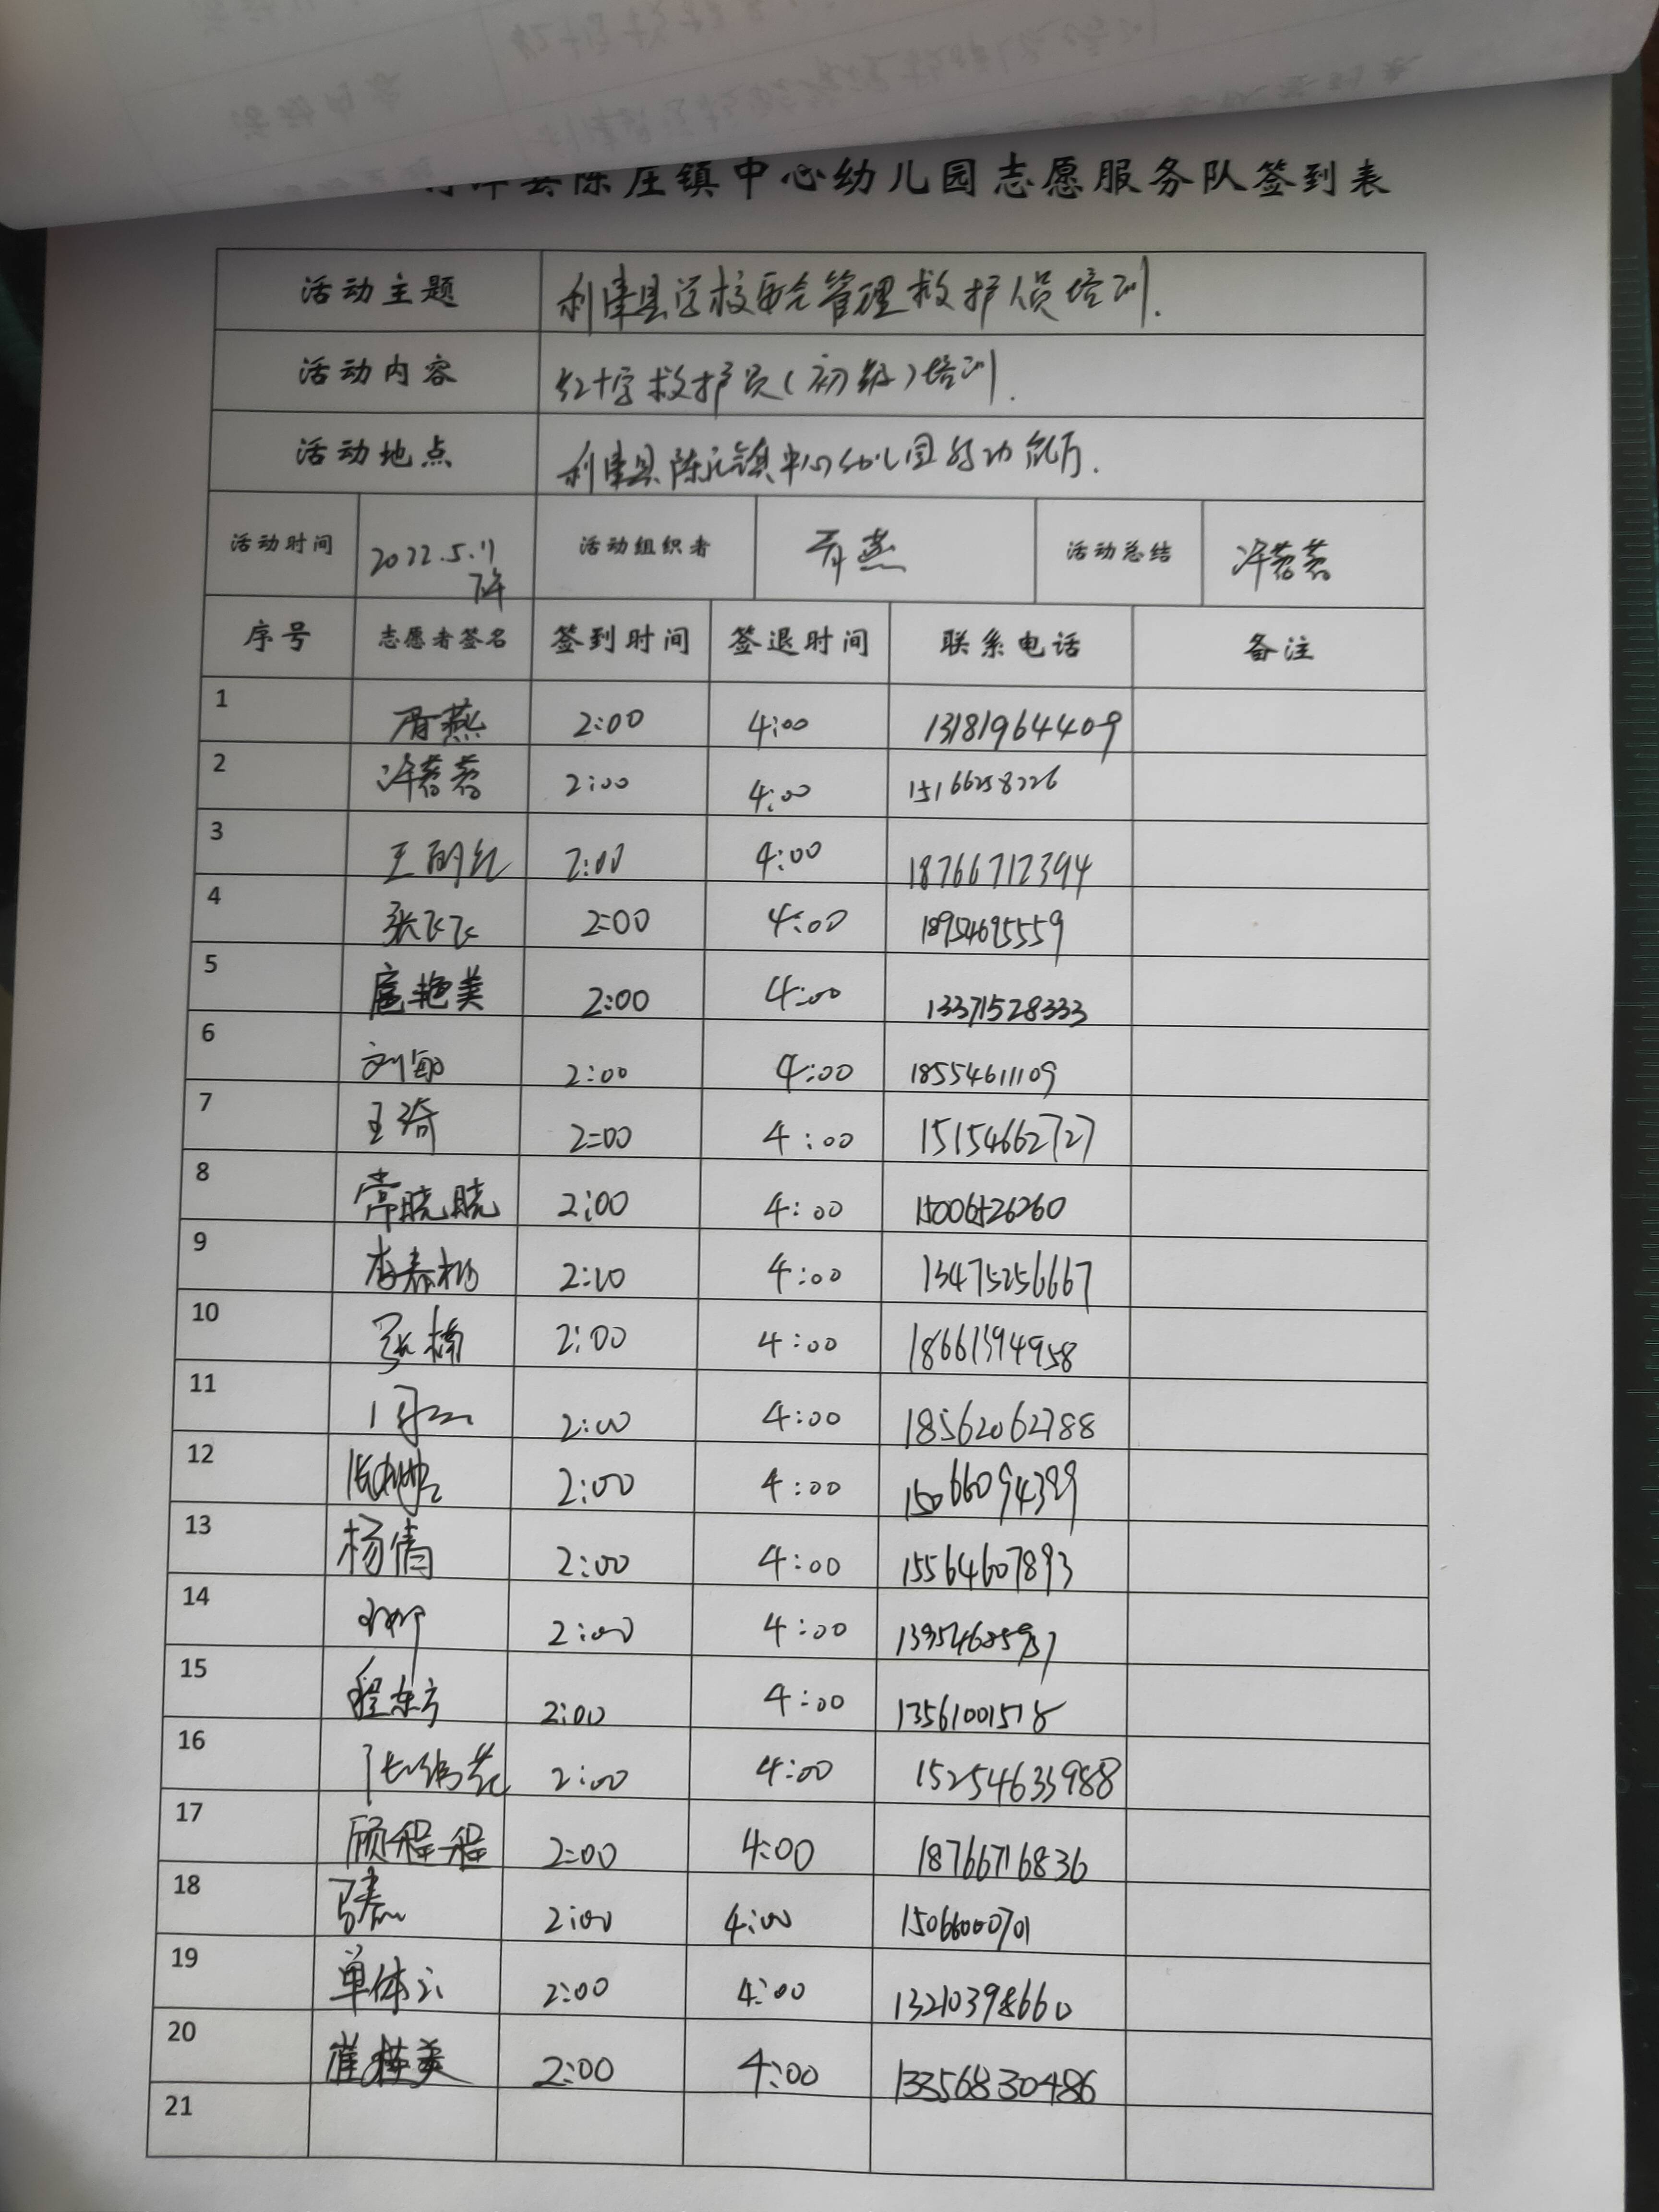 县陈庄镇中心幼儿园志愿服务队签到表
活动主题 利津县学校安全管理救护员培训.
活动内容 红十字救护员(初级)培训.
活动地点 利津县陈庄镇中心幼儿园多功能厅.
活动时间 2022.5.11 下午 活动组织者 胥燕 活动总结 许蓉蓉
序号 志愿者签名 签到时间 签退时间 联系电话 备注
1 胥燕 2:00 4:00 13181964409
2 许蓉蓉 2:00 4:00 15166258226
3 王丽红 2:00 4:00 18766712394
4 张飞飞 2:00 4:00 18954695559
5 扈艳美 2:00 4:00 13371528333
6 刘敏 2:00 4:00 18554611109
7 王琦 2:00 4:00 15154662727
8 常晓晓 2:00 4:00 15006526260
9 李春杨 2:00 4:00 13475256667
10 张楠 2:00 4:00 18661394958
11 2:00 4:00 18562062788
12 2:00 4:00 15066094399
13 杨倩 2:00 4:00 15564607893
14 2:00 4:00
15 程东方 2:00 4:00 13561001518
16 2:00 4:00 15254633988
17 顾程程 2:00 4:00 18766716836
18 2:00 4:00 15066000701
19 单体 2:00 4:00 13210398660
20 崔桂美 2:00 4:00 13356830486
21